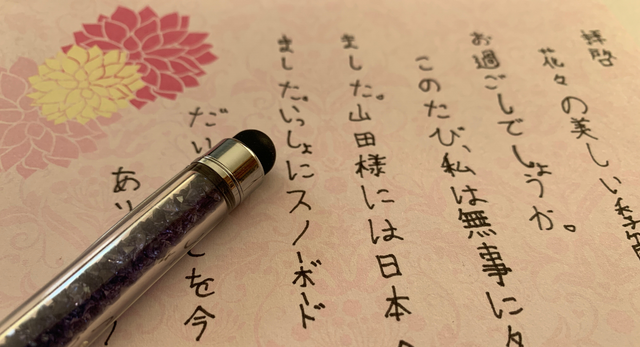 拝啓
花々の美しい季節
お過ごしでしょうか。
このたび、私は無事に
ました。山田様には日本
ました。いっしょにスノーボード
だい
を今
あり